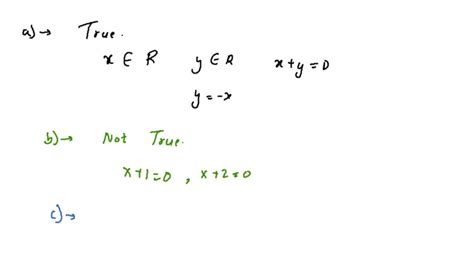 a) → True.
x ∈ R y ∈ R x+y=0
y=-x
b) → Not True.
x+1=0 , x+2=0
c) →